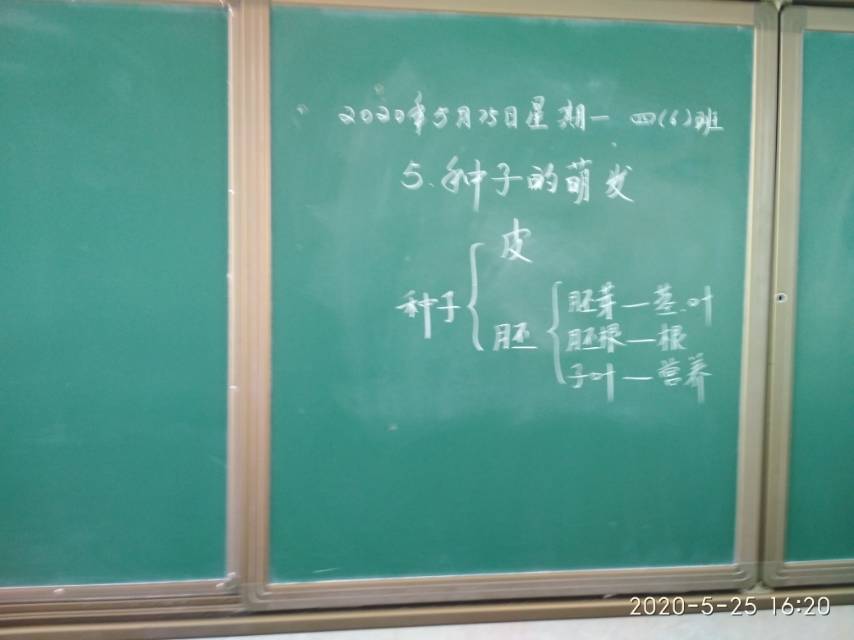 2020年5月25日星期一 四(6)班
5.种子的萌发
皮
种子
胚
胚芽—茎.叶
胚根—根
子叶—营养
2020-5-25 16:20